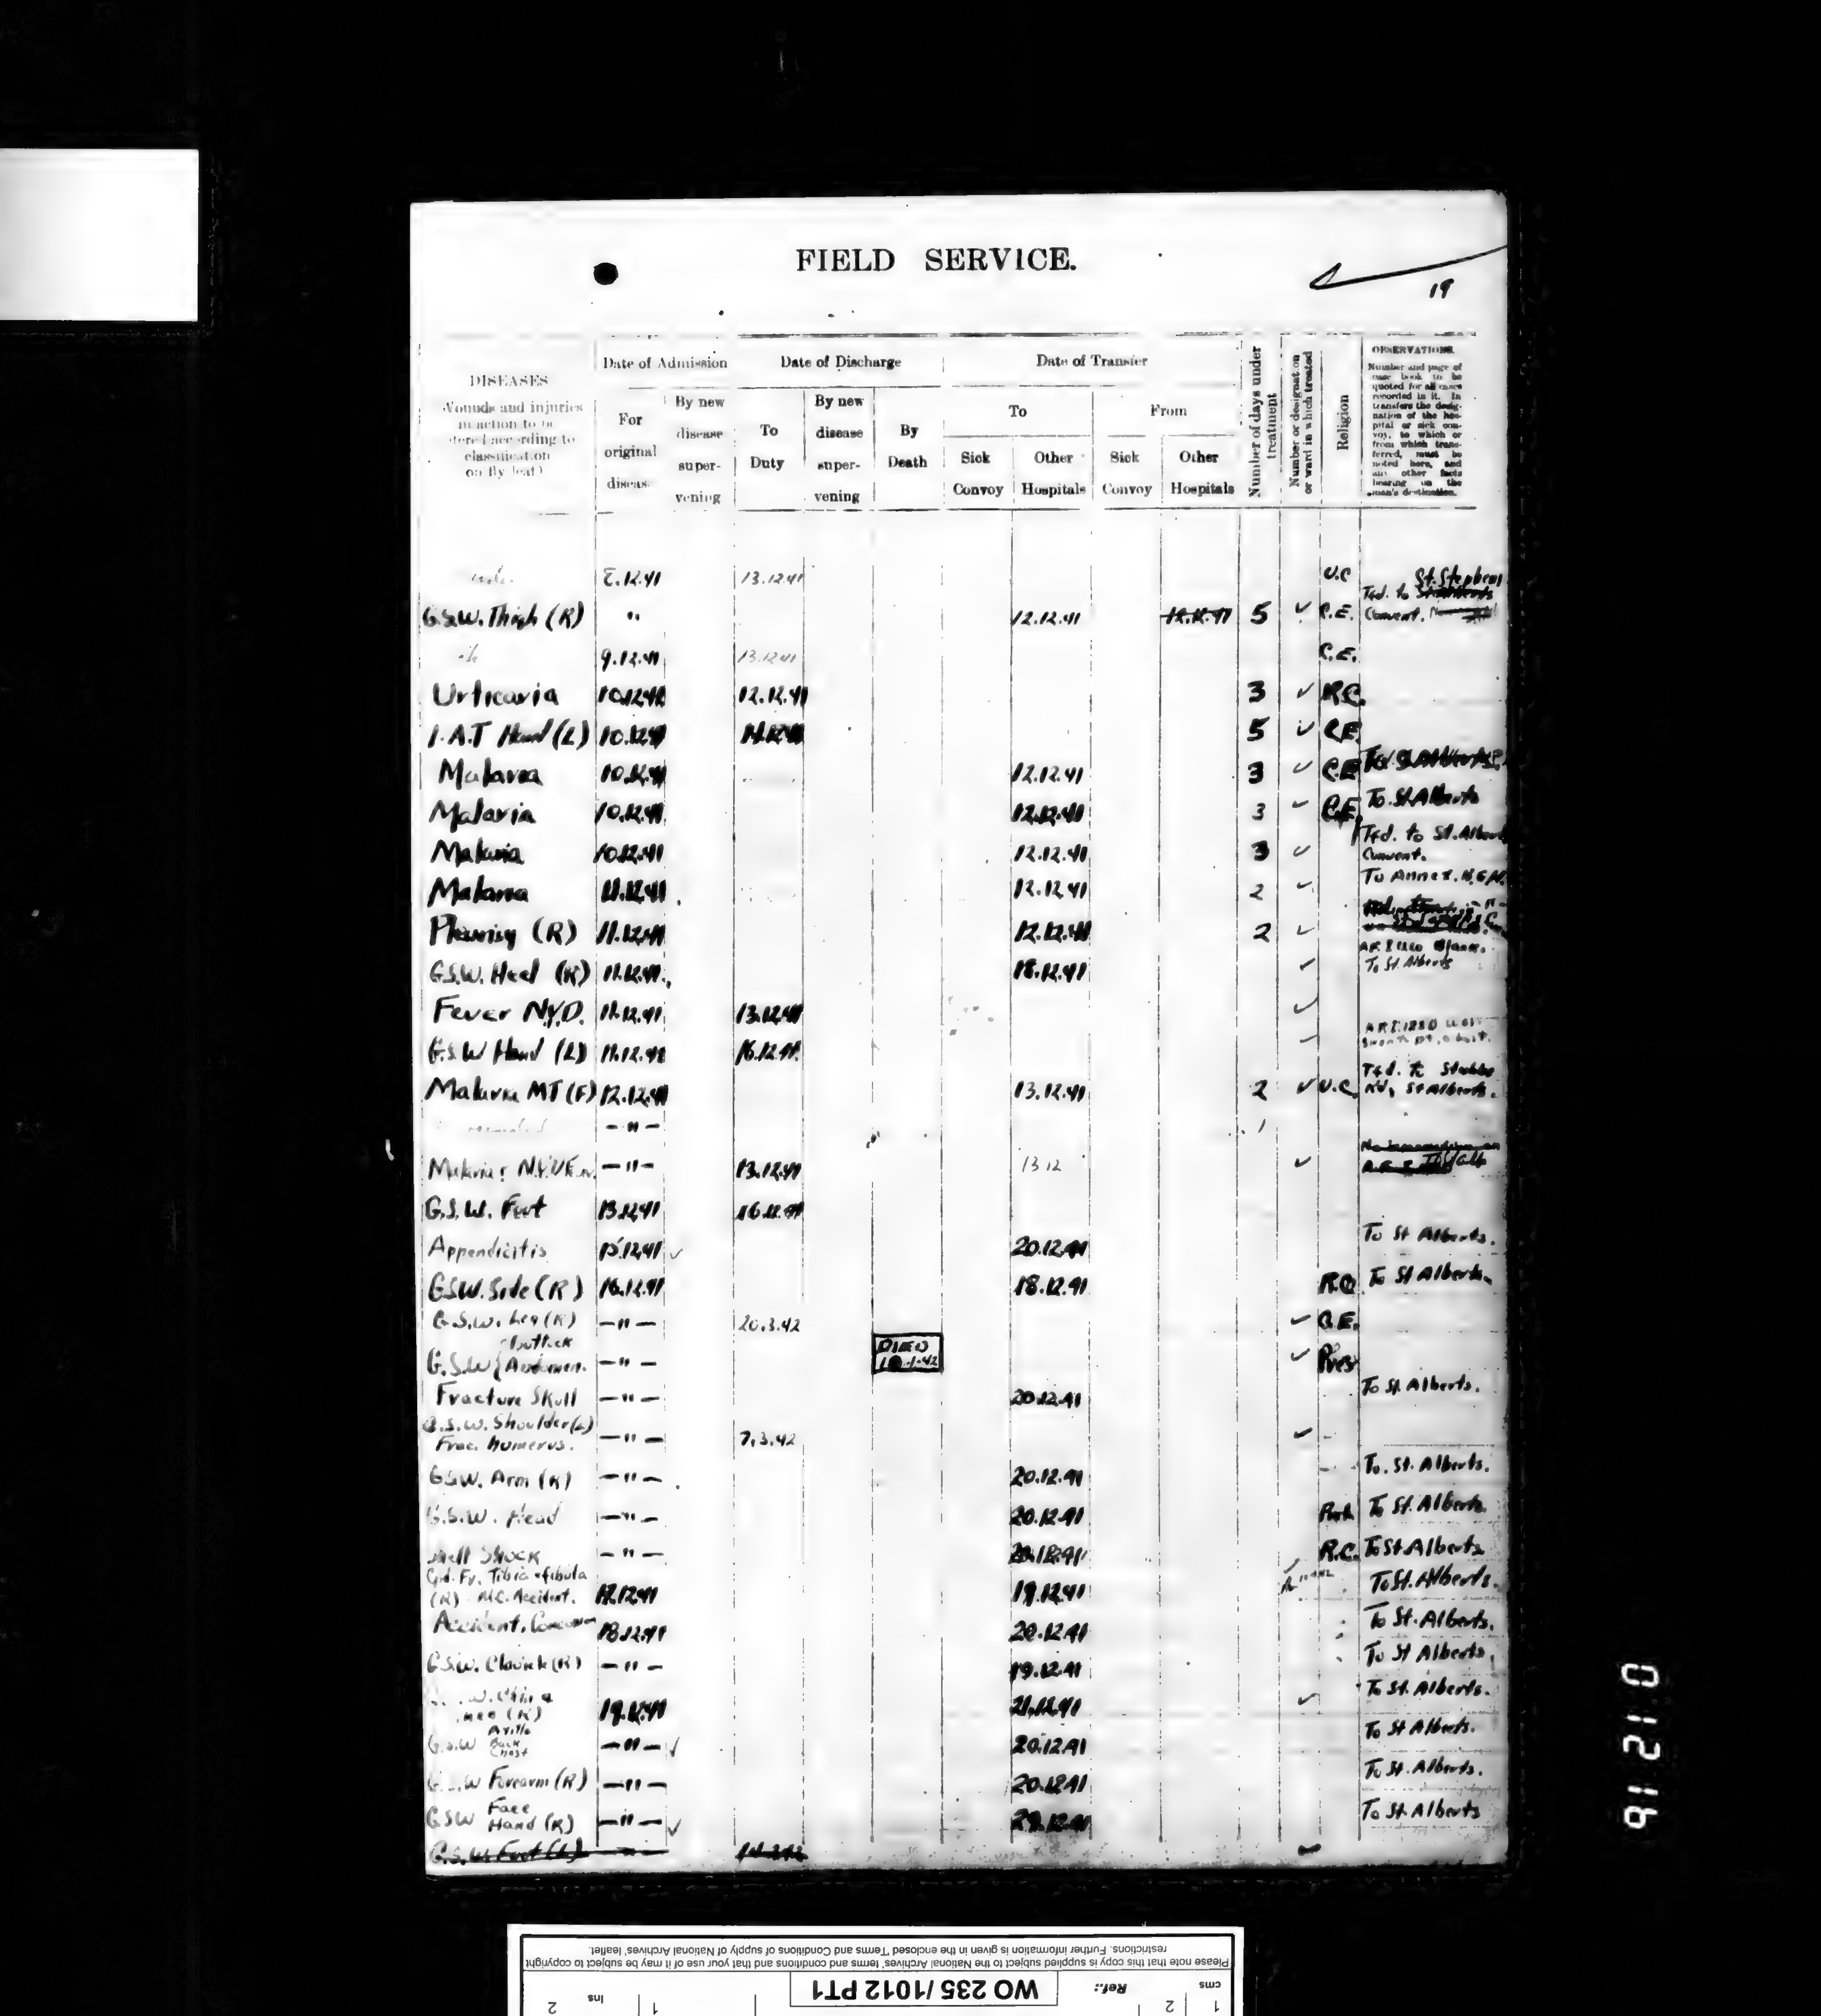 FIELD SERVICE.
19
DISEASES
Wounds and injuries
in action to be
according to
classification
on fly leaf)
Date of Admission
For
original
By new
disease
super-
vening
Date of Discharge
To
Duty
By new
disease
super-
vening
By
Death
Date of Transfer
To
Sick
Convoy
Other
Hospitals
From
Sick
Convoy
Other
Hospitals
Number of days under
treatment
Number or designation
or ward in which treated
Religion
OBSERVATIONS.
Number and page of
case book to be
quoted for all cases
recorded in it. In
transfers the desig-
nation of the hos-
pital or sick con-
voy, to which or
from which trans-
ferred, must be
noted here, and
any other facts
bearing on the
man's destination.
8.12.41 13.12.41 U.C St. Stephens
G.S.W. Thigh (R) " 12.12.41 12.12.41 5 ✓ C.E. Tfd. to Convent.
9.12.41 13.12.41 C.E.
Urticaria 10.12.41 12.12.41 3 ✓ R.C.
I.A.T Hand (L) 10.12.41 14.12.41 5 ✓ C.E.
Malaria 10.12.41 12.12.41 3 ✓ C.E
Malaria 10.12.41 12.12.41 3 ✓ C.E. To. St. Alberts
Malaria 10.12.41 12.12.41 3 ✓ Tfd. to St. Alberts
Convent.
Malaria 11.12.41 12.12.41 2 ✓ To Annex.
Pleurisy (R) 11.12.41 12.12.41 2 ✓
G.S.W. Heel (R) 11.12.41 18.12.41 ✓ To St. Alberts
Fever N.Y.D. 11.12.41 13.12.41 ✓
G.S.W Hand (L) 11.12.41 16.12.41 ✓
Malaria MT (F) 12.12.41 13.12.41 2 ✓ U.C. Tfd. to Stubbs
Rd, St Alberts.
— " —
Malaria — " — 13.12.41 13 12 ✓
G.S.W. Foot 13.12.41 16.12.41
Appendicitis 15.12.41 ✓ 20.12.41 To St Alberts.
G.S.W. Side (R) 16.12.41 18.12.41 R.C. To St Alberts.
G.S.W. Leg (R) — " — 20.3.42 ✓ C.E.
G.S.W { buttock
Abdomen. — " — DIED
-1-42 ✓ Pres
Fracture Skull — " — 20.12.41 To St. Alberts.
G.S.W. Shoulder (L)
Frac. humerus. — " — 7.3.42 ✓
G.S.W. Arm (R) — " — 20.12.41 To. St. Alberts.
G.S.W. Head — " — 20.12.41 To St. Alberts.
Shell Shock — " — 20.12.41 R.C. To St Alberts
Cpd. Fr. Tibia + fibula
(R) M.C. Accident. 17.12.41 19.12.41 To St. Alberts.
Accident. 18.12.41 20.12.41 To St. Alberts.
G.S.W. Clavicle (R) — " — 19.12.41 To St Alberts.
(R) 19.12.41 21.12.41 ✓ To St. Alberts.
G.S.W Axilla
Back
Chest — " — ✓ 20.12.41 To St Alberts.
G.S.W Forearm (R) — " — 20.12.41 To St. Alberts.
GSW Face
Hand (R) — " — ✓ 20.12.41 To St. Alberts
G.S.W. Foot (L)
0 1 2 1 6
Please note that this copy is supplied subject to the National Archives' terms and conditions and that your use of it may be subject to copyright
restrictions. Further information is given in the enclosed 'Terms and Conditions of supply of National Archives' leaflet.
cms 1 2
Ref.: WO 235/1012 PT1
ins 1 2